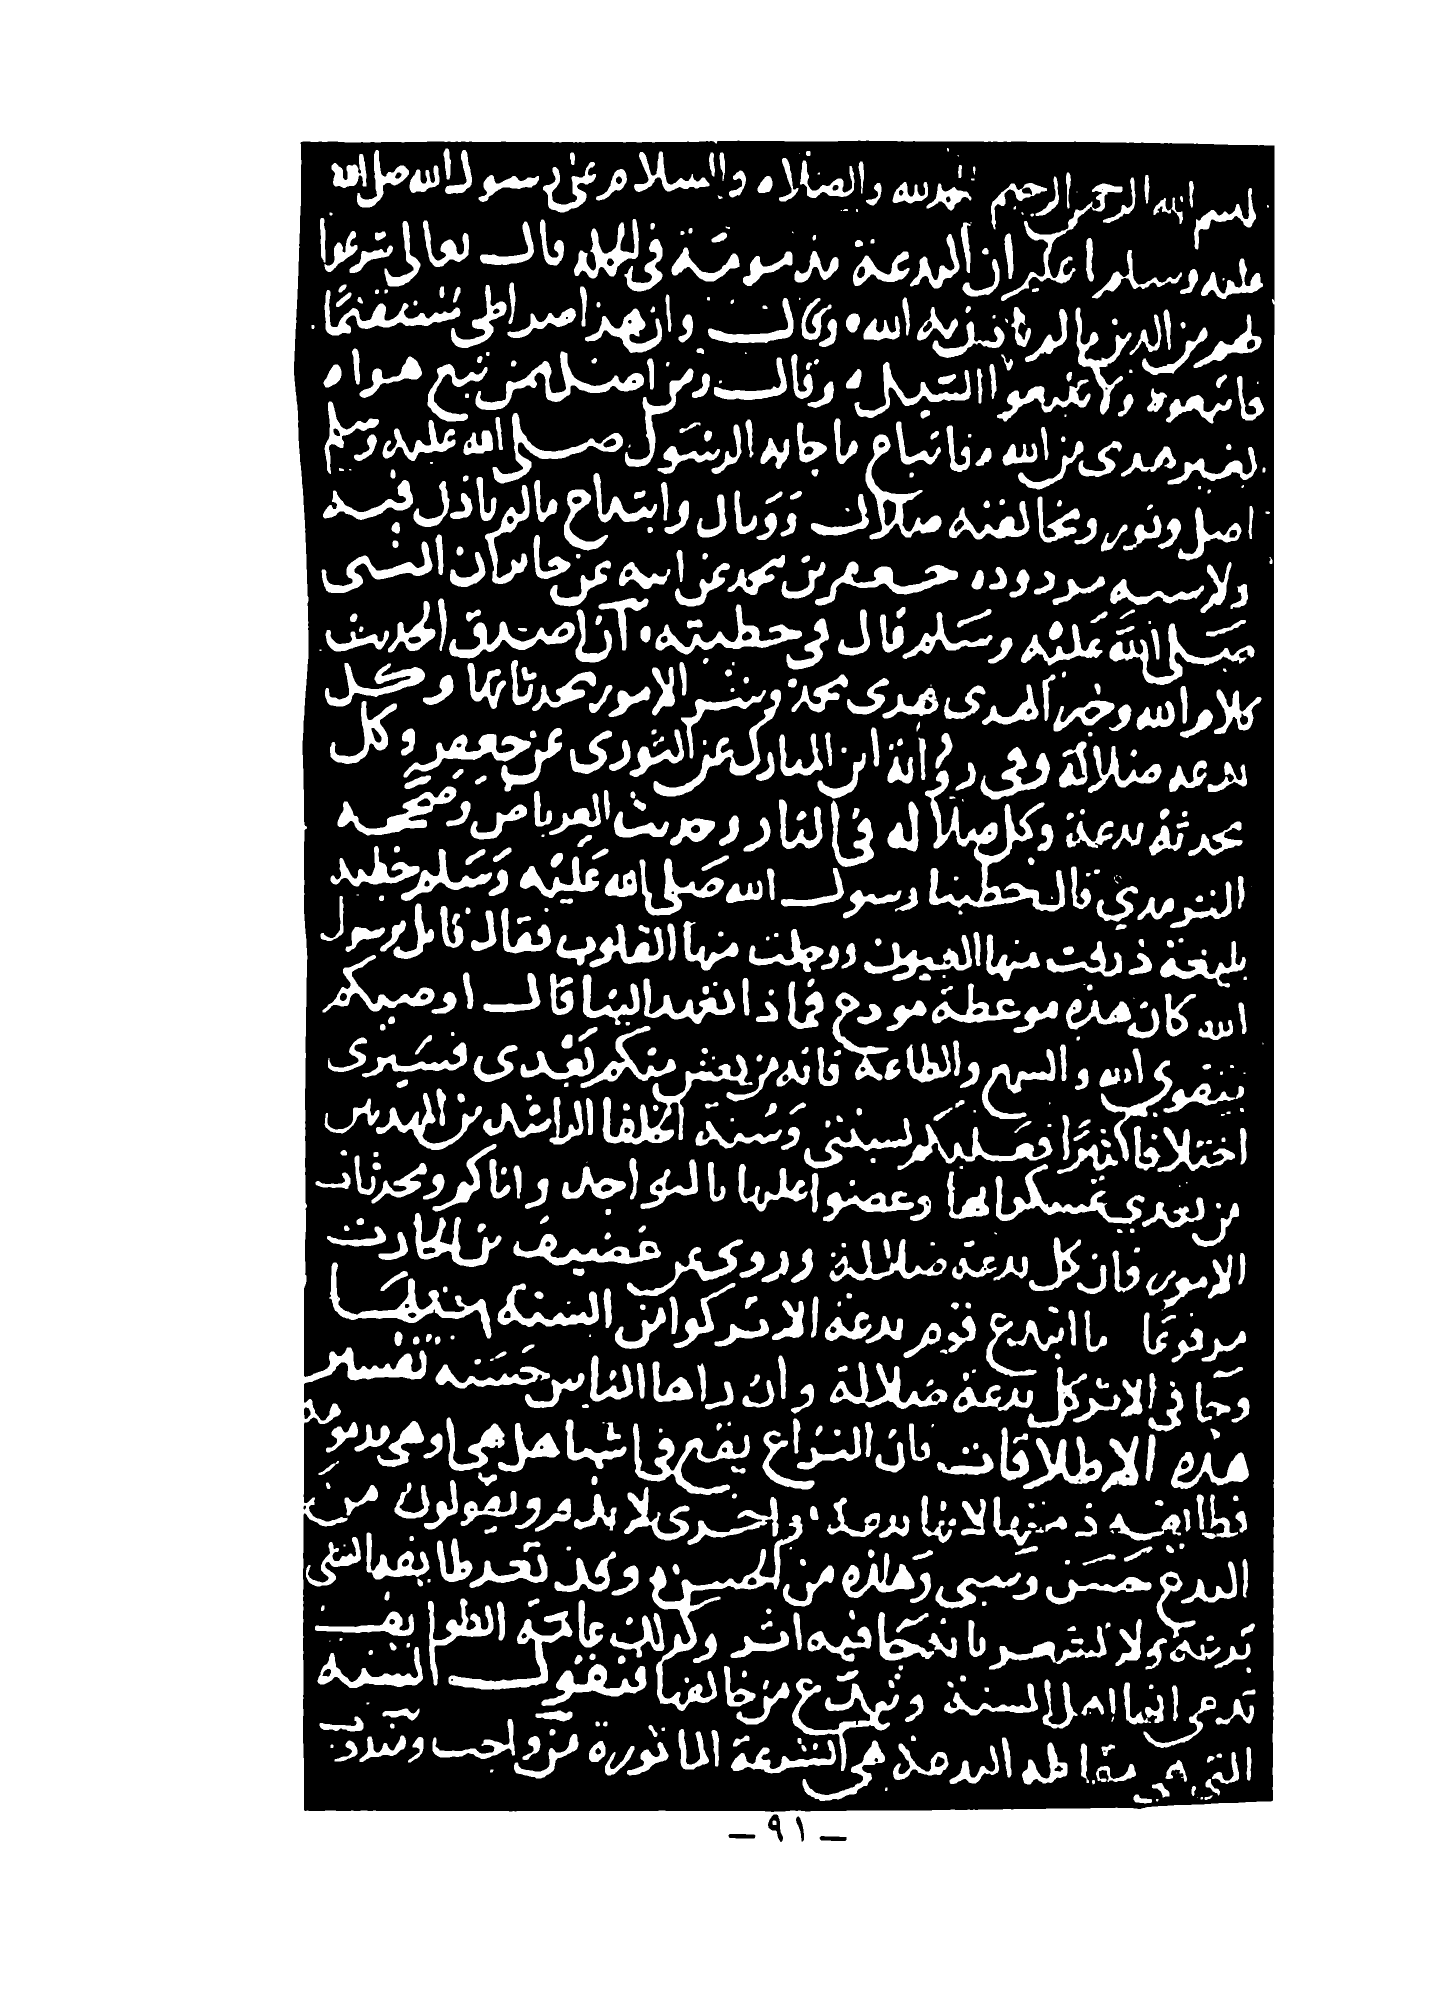 بسم الله الرحمن الرحيم الحمد لله والصلاه والسلام على رسول الله صلى الله
عليه وسلم اعلم ان البدعة مذمومة في الجملة قال تعالى شرعوا
لهم من الدين ما لم ياذن به الله وقال وان هذا صراطي مستقيمًا
فاتبعوه ولا تتبعوا السبل وقال ومن اضل ممن تبع هواه
بغير هدى من الله فاتباع ما جا به الرسول صلى الله عليه وسلم
اصل ونور ومخالفته ضلال ووبال وابتداع ما لم ياذن فيه
ولا سنه مردوده جعفر بن محمد عن ابيه عن جابر ان النبي
صلى الله عليه وسلم قال في خطبته ان اصدق الحديث
كلام الله وخير الهدى هدى محمد وشر الامور محدثاتها وكل
بدعه ضلالة وفي رواية ابن المبارك عن الثورى عن جعفر وكل
محدثة بدعة وكل ضلاله في النار وحديث العرباض وصححه
الترمذي قال خطبنا رسول الله صلى الله عليه وسلم خطبه
بليغة ذرفت منها العيون ووجلت منها القلوب فقال قايل يرسول
الله كان هذه موعظة مودع فماذا تعهد الينا قال اوصيكم
بتقوى الله والسمع والطاعة فانه من يعش منكم بعدى فسيرى
اختلافا كثيرًا فعليكم بسنتي وسنة الخلفا الراشدين المهديين
من بعدي تمسكوا بها وعضوا عليها بالنواجد واياكم ومحدثات
الامور فان كل بدعة ضلالة وروى عن غضيف بن الحارث
مرفوعًا ما ابتدع قوم بدعة الا تركوا من السنة مثلها
وجا في الاثر كل بدعة ضلالة وان راها الناس حسنه تفسير
هذه الاطلاقات بان النزاع يقع في اشيا هل هي اوهى مذمومة
فطايفة ذمتها لانها بدعة واخرى لا يذم ويقولون من
البدع حسن وسيى وهذه من الحسن وقد تعد طايفه الشي
بدعة ولا تشعر بانه جا فيه اثر وكذلك عامة الطوايف
تدعى انها اهل السنة وتبدع من خالفها فنقول السنة
التي هي مقابله البدعة هي الشرعة الماثورة من واجب ومندوب
- ٩١ -